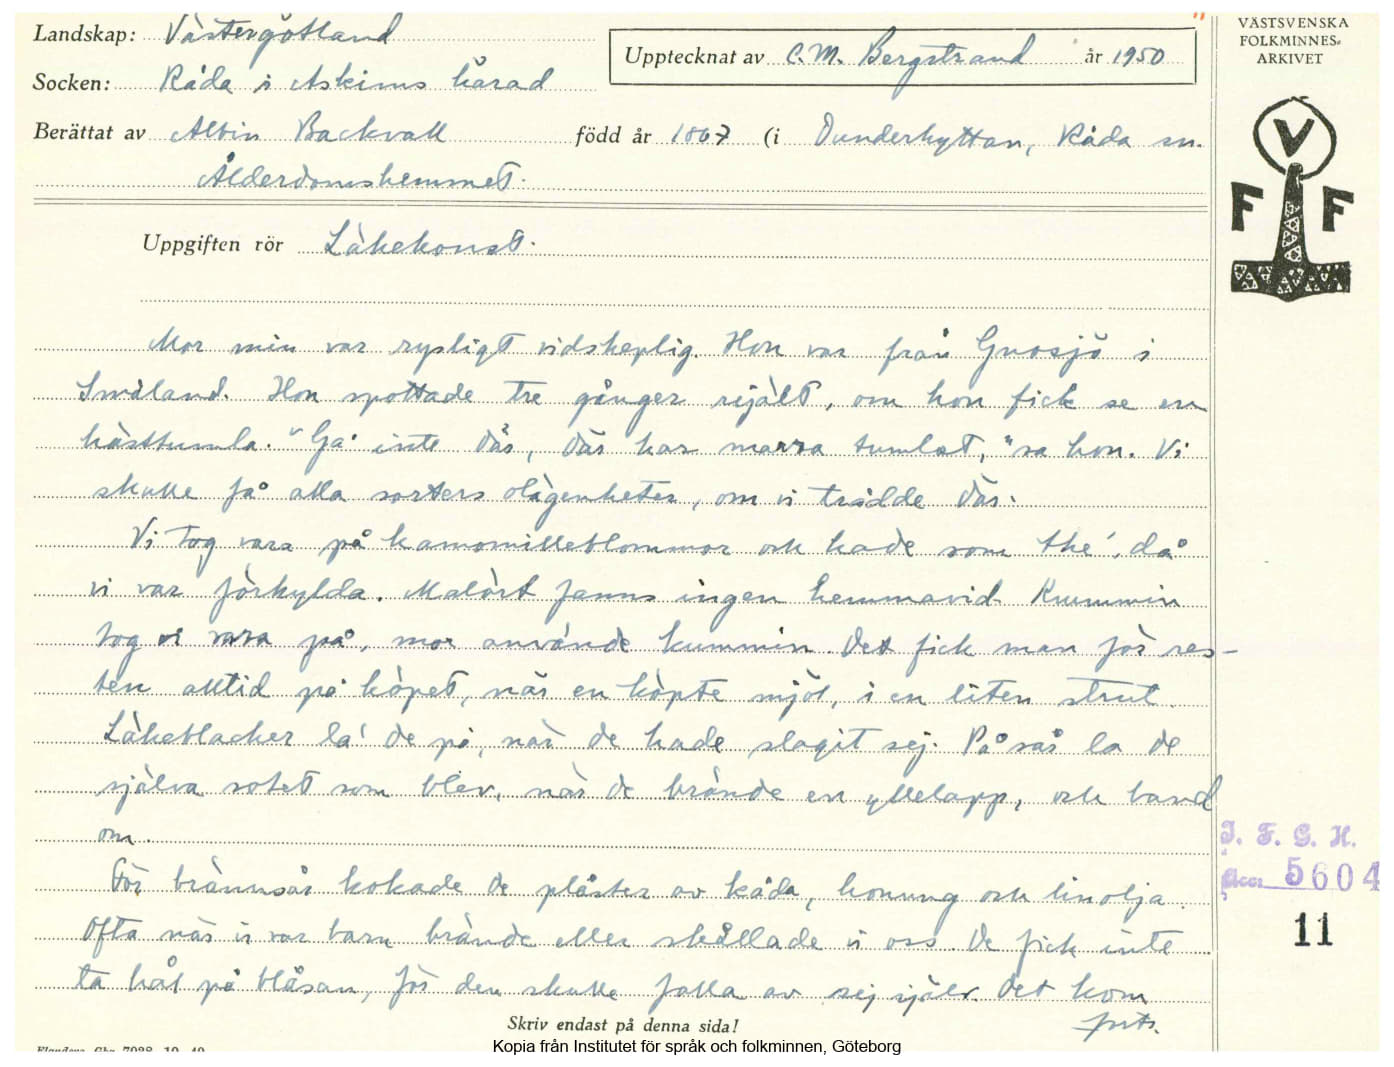 Landskap: Västergötland
Socken: Råda i Askims härad
Upptecknat av C.M. Bergstrand år 1950
Berättat av Albin Backvall född år 1867 (i Dunderhyttan, Råda sn.
Ålderdomshemmet.
Uppgiften rör Läkekonst.
Mor min var rysligt vidskeplig. Hon var från Gnosjö i
Småland. Hon spottade tre gånger rejält, om hon fick se en
hästtumla. "Gå inte där, där har marra tumlat," sa hon. Vi
skulle få alla sorters olägenheter, om vi trädde där.
Vi tog vara på kamomilleblommor och hade som the', då
vi var förkylda. Malört fanns ingen hemmavid. Kummin
tog vi vara på, mor använde kummin. Det fick man för res-
ten alltid på köpet, när en köpte mjöl, i en liten strut.
Läkeblacker la' de på, när de hade slagit sej. På sår la de
själva sotet som blev, när de brände en yllelapp, och band
om.
För brännsår kokade de plåster av kåda, honung och linolja.
Ofta när vi var barn brände eller skållade vi oss. De fick inte
ta hål på blåsan, för den skulle falla av sej själv. Det kom
forts.
Skriv endast på denna sida!
Kopia från Institutet för språk och folkminnen, Göteborg
VÄSTSVENSKA
FOLKMINNES-
ARKIVET
V
F F
I. F. G. H.
Acc. 5604
11